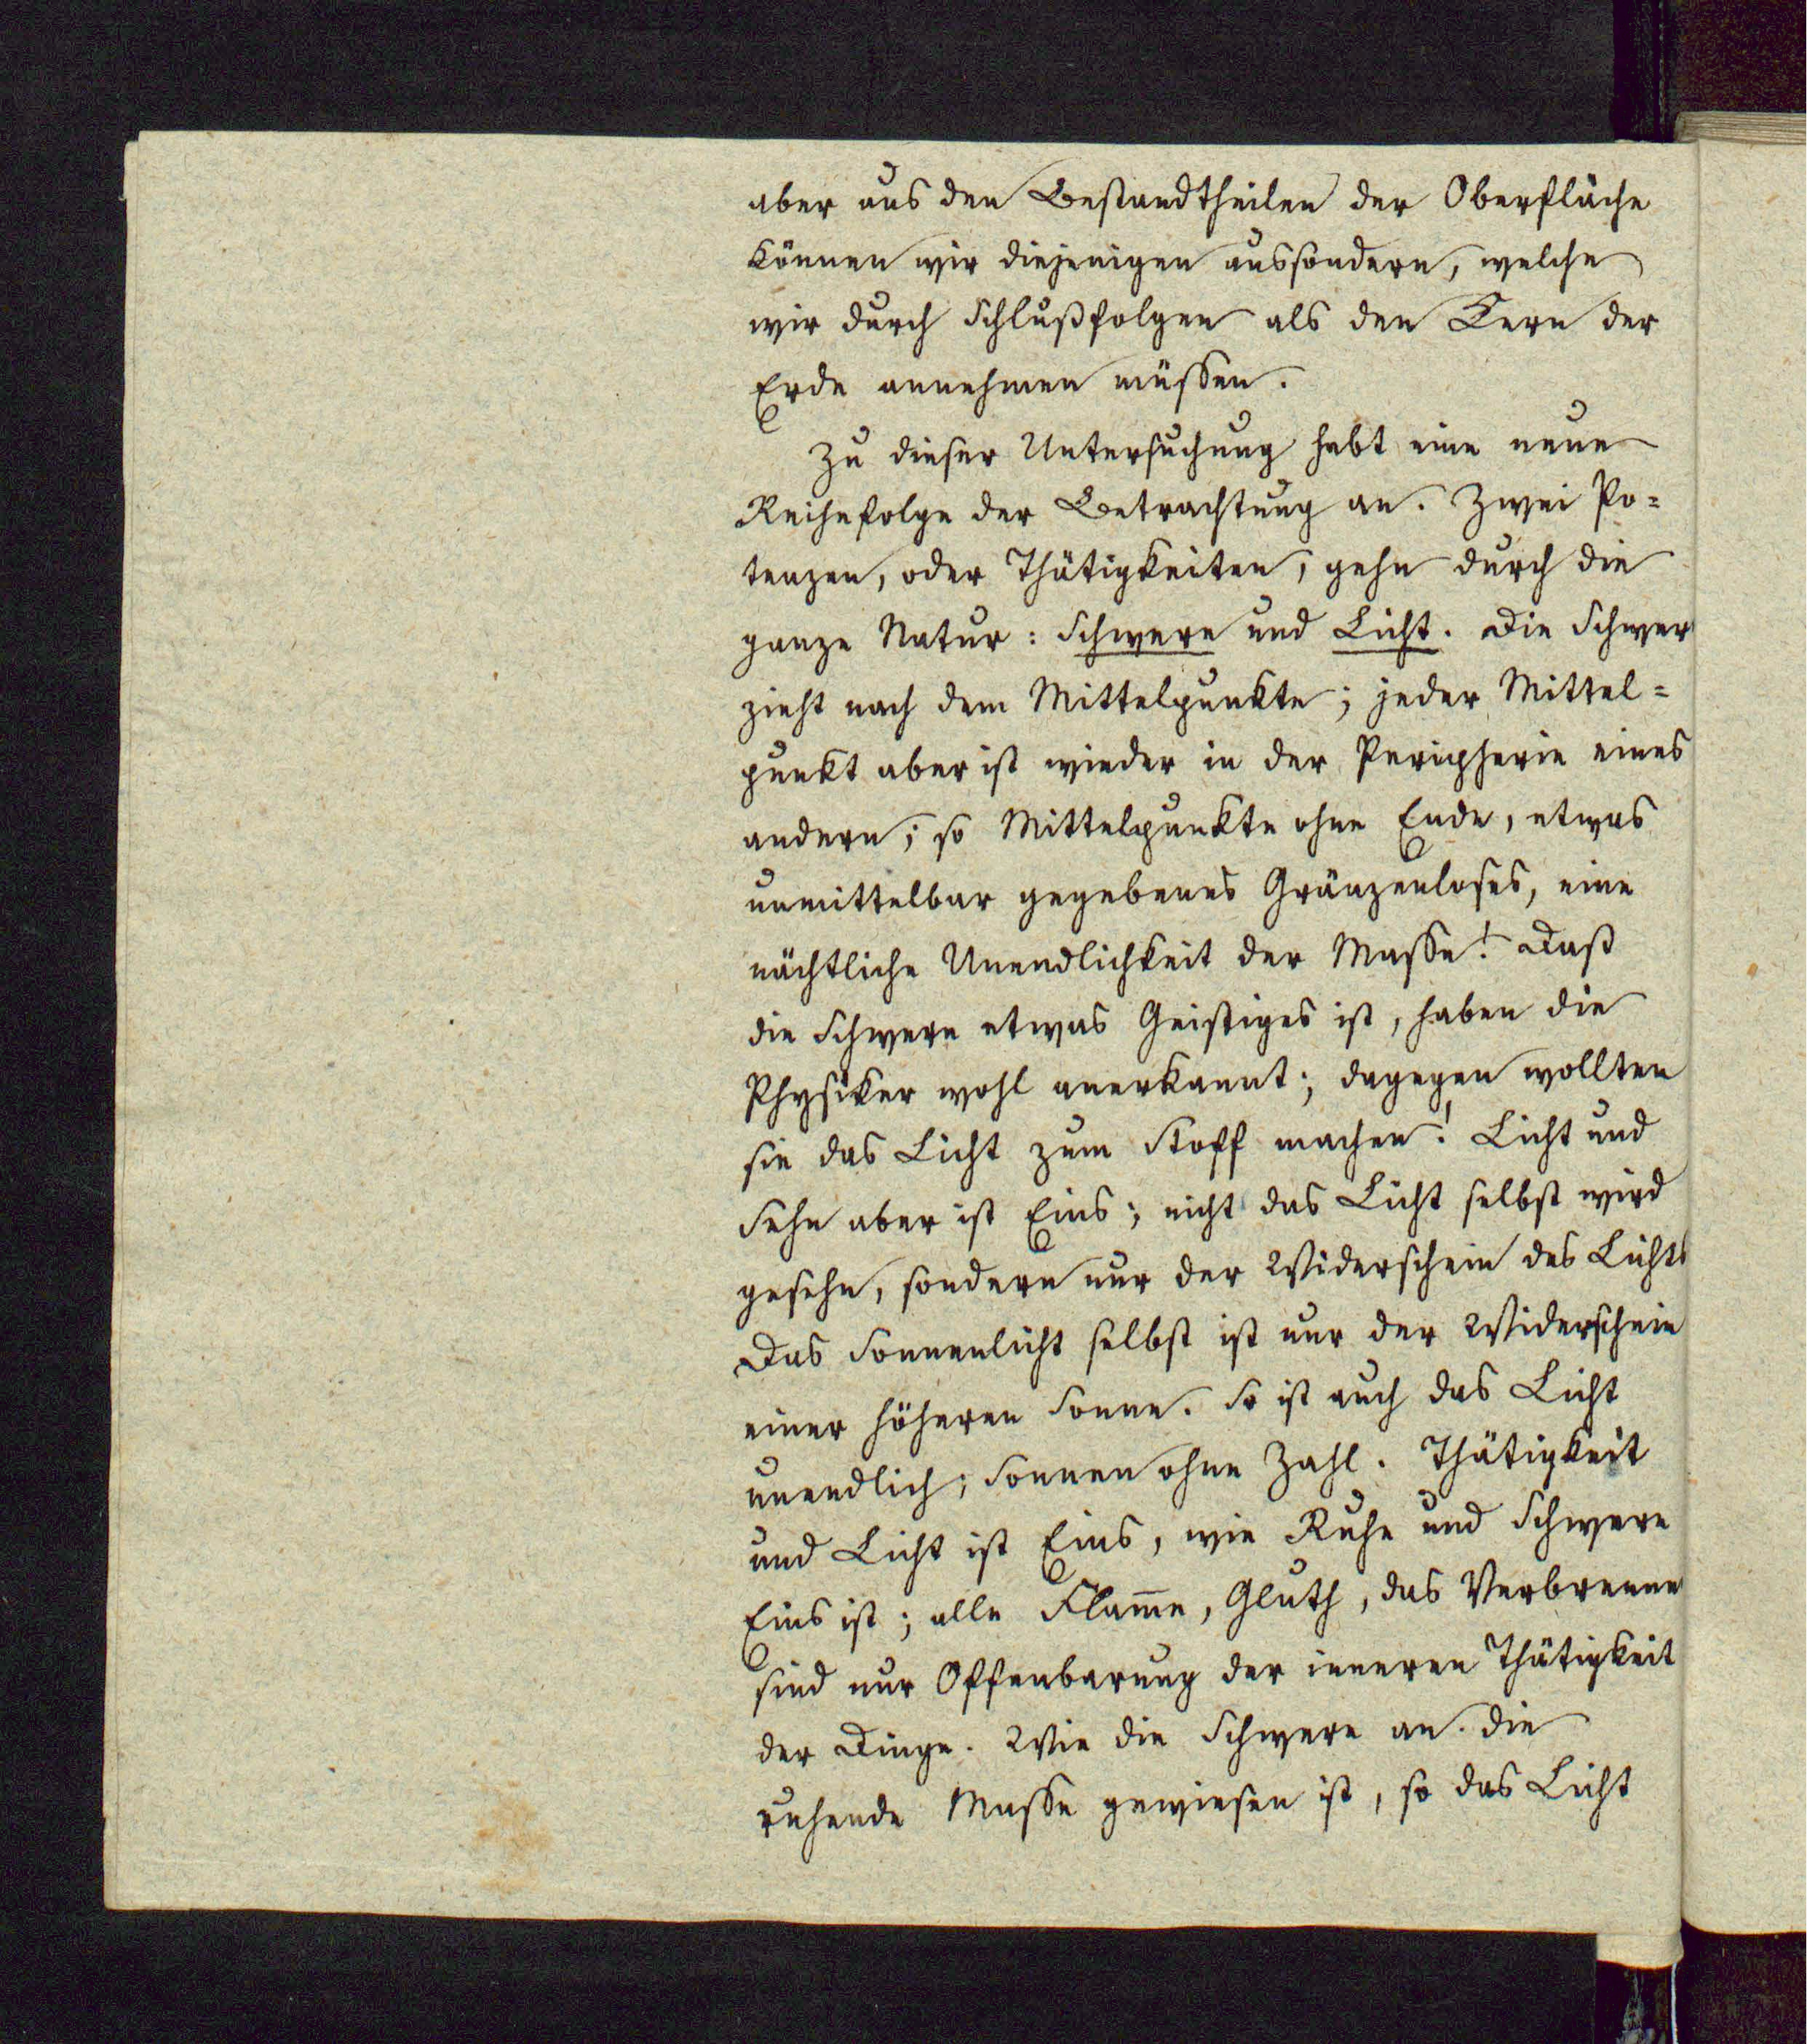 aber aus den Bestandtheilen der Oberfläche
können wir diejenigen aussondern, welche
wir durch Schlußfolgen als den Kern der
Erde annehmen müssen.
Zu dieser Untersuchung hebt eine neue
Reihefolge der Betrachtung an. Zwei Po=
tenzen, oder Thätigkeiten, gehn durch die
ganze Natur: Schwere und Licht. Die Schwer
zieht nach dem Mittelpunkte; jeder Mittel=
punkt aber ist wieder in der Peripherie eines
andern; so Mittelpunkte ohne Ende, etwas
unmittelbar gegebenes Gränzenloses, eine
nächtliche Unendlichkeit der Masse! Daß
die Schwere etwas Geistiges ist, haben die
Physiker wohl anerkannt; dagegen wollten
sie das Licht zum Stoff machen! Licht und
Sehn aber ist Eins; nicht das Licht selbst wird
gesehn, sondern nur der Widerschein des Lichts
Das Sonnenlicht selbst ist nur der Widerschein
einer höheren Sonne. So ist auch das Licht
unendlich; Sonnen ohne Zahl. Thätigkeit
und Licht ist Eins, wie Ruhe und Schwere
Eins ist; alle Flam̅e, Gluth, das Verbrenne
sind nur Offenbarung der inneren Thätigkeit
der Dinge. Wie die Schwere an die
ruhende Masse gewiesen ist, so das Licht